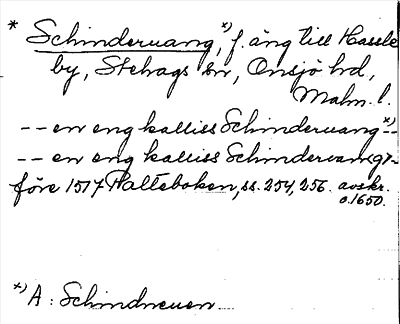 * Schinderuang, *) f. äng till Hassle
by, Stehags sn, Onsjö hd,
Malm. l.
-- en eng kalliss Schinderuang *) --
-- en eng kalliss Schinderuang --
före 1517 Palteboken, ss. 254, 256. avskr.
o. 1650.
*) A: Schindneuen